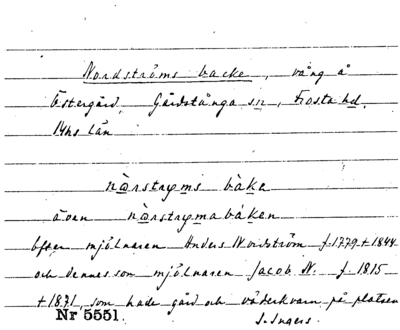 Nordströms backe, vång å
Östergård, Gårdstånga sn, Frosta hd.
Mhs län
även
Efter mjölnaren Anders Nordström f. 1779 + 1844
och dennes son mjölnaren Jacob N. f. 1815
+ 1871, som hade gård och väderkvarn på platsen
Nr 5551. S. Ingers.